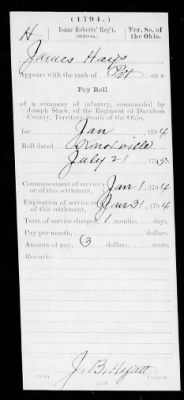 (1794.)
H
Isaac Roberts' Reg't.
(MILITIA.)
Ter. So. of
the Ohio.
James Hays
Appears with the rank of Pvt on a
Pay Roll
of a company of infantry, commanded by
Joseph Shaw, of the Regiment of Davidson
County, Territory South of the Ohio,
for Jan 1794
Roll dated Knoxville
July 21 1795
Commencement of service or of this settlement, Jan 1 1794
Expiration of service or of this settlement, Jan 31 1794
Term of service charged, 1 months, days.
Pay per month, dollars, cents.
Amount of pay, 3 dollars, cents.
Remarks:
J. B. Hyatt
Copyist.